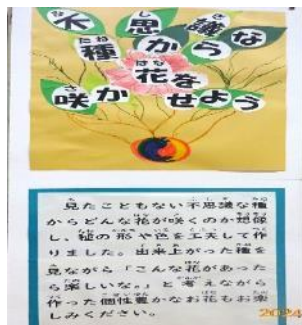 不思議な
種から
花を
咲かせよう
見たこともない不思議な種
からどんな花が咲くのか想像
し、種の形や色を工夫して作
りました。出来上がった種を
見ながら「こんな花があった
ら楽しいな。」と考えながら
作った個性豊かなお花もお楽
しみください。